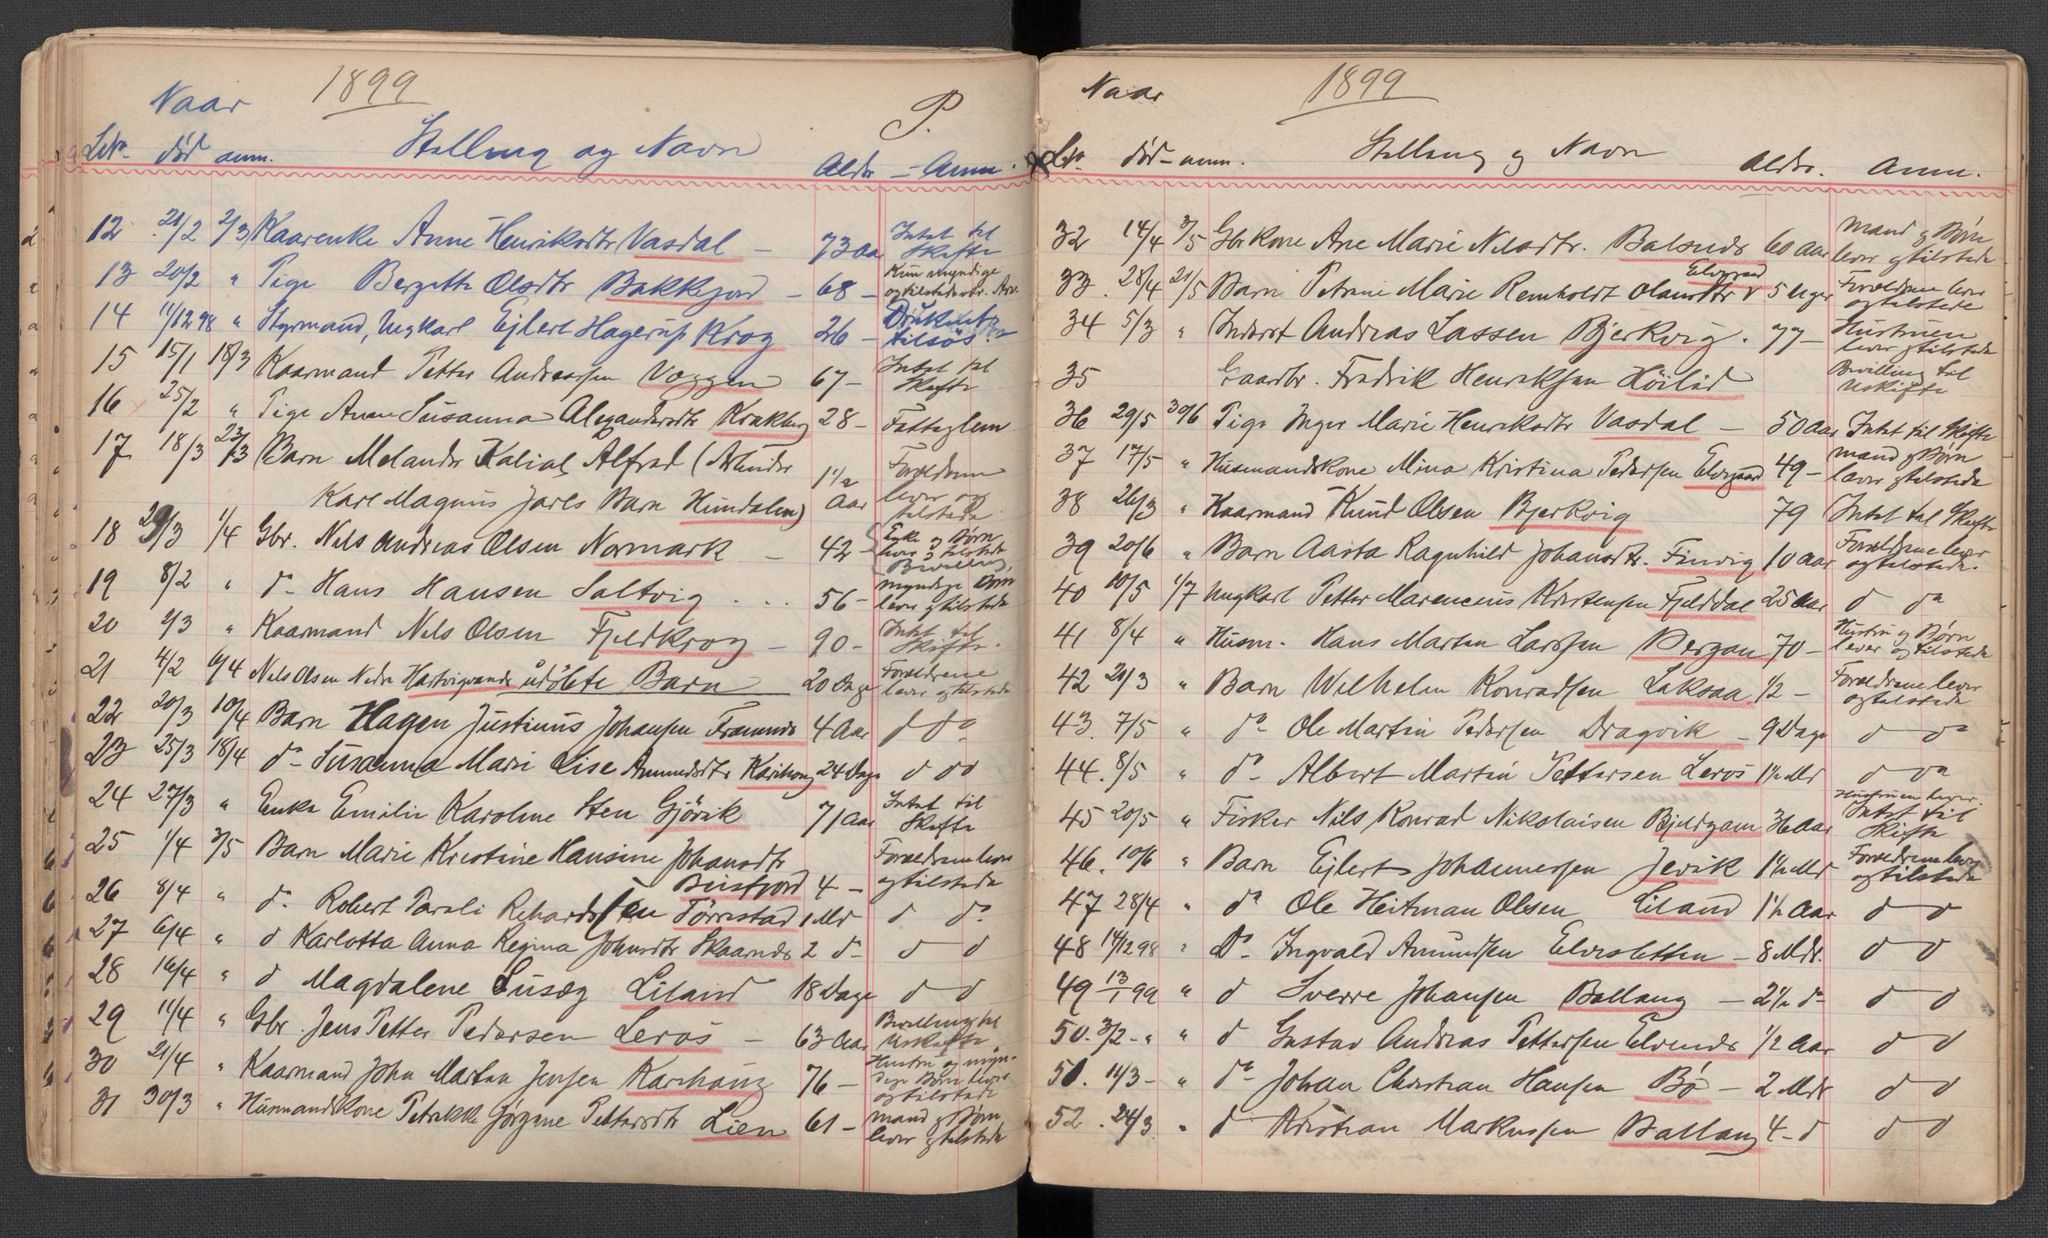 Naar 1899 P.
LNo død anm. Stilling og Navn Aldr – Anm.
12 21/2 2/3 Kaarenke Anne Henriksdtr Vasdal – 73 Aar Intet til Skifte
13 20/2 " Pige Bergette Olsdtr Bakkejord – 68 – Kun myndige og tilstedevær. Arv.
14 11/12 98 " Styrmand, Ungkarl Ejlert Hagerup Krog 26 – Druknet tilsøs
15 15/1 18/3 Kaarmand Petter Andreassen Voggen 67 – Intet til Skifte
16 25/2 " Pige Anne Susanna Alexandersdtr Krakberg 28 – Fattiglem
17 18/3 23/3 Barn Melander Kalial Alfred ( Forældrene
Karl Magnus Jarls Barn Hundalen) 1 1/2 Aar lever og tilstede
18 29/3 1/4 Gbr. Nils Andreas Olsen Normark – 42 – Enke og Børn lever og tilstede (Bevilling)
19 8/2 " do Hans Hansen Saltvig . . . 56 – myndige Børn lever og tilstede
20 2/3 " Kaarmand Nils Olsen Fjeldkrog – 90 – Intet til Skifte.
21 4/2 6/4 Nils Olsen Nedre Hartvigvands udöbte Barn 20 Dage Forældrene lever og tilstede
22 20/3 10/4 Barn Hagen Justinus Johansen Framnds 4 Aar d do
23 25/3 18/4 do Susanna Marie Lise Amundsdtr Karhaug 24 Dage d do
24 27/3 " Enke Emilie Karoline Sten Gjövik 71 Aar Intet til Skifte
25 1/4 3/5 Barn Marie Kristine Hansine Johansdtr Forældrene lever
Beisfjord 4 – og tilstede
26 8/4 " do Robert Pareli Rikardsen Tørrestad 1 Md d do
27 6/4 " d Karlotta Anna Regina Johansdtr Skaands 2 do d d
28 16/4 " d Magdalene Susæg Liland 18 Dage d d
29 11/4 " Gbr. Jens Petter Pedersen Lerøs – 63 Aar Bevilling til Uskifte
30 21/4 " Kaarmand John Martin Jensen Karhaug 76 – Hustru og myndige Børn lever og tilstede
31 30/3 " Husmandskone Petrikke Jørgine Pettersdtr Lien 61 – mand og Børn lever og tilstede
Naar 1899
LNo død – anm. Stilling og Navn Aldr. Anm.
32 14/4 3/5 Gbrkone Ane Marie Nilsdtr. Balsnds 60 Aar mand og Børn lever og tilstede
33 . 28/4 21/5 Barn Petrine Marie Remholdt Olausdtr Elvegaard 5 Uger Forældrene lever og tilstede
34 5/3 " Inderst Andreas Lassen Bjerkvig . 77 – Hustruen lever og tilstede
35 Gaardbr. Fredrik Henriksen Höilid Bevilling til Uskifte
36 29/5 30/6 Pige Inger Marie Henriksdtr Vasdal – 50 Aar Intet til Skifte
37 17/5 " Husmandskone Mina Kristina Pedersen Elvegaard 49 – mand og Børn lever og tilstede
38 26/3 " Kaarmand Knud Olsen Bjerkvig 79 Intet til Skifte
39 20/6 " Barn Aasta Ragnhild Johansdtr. Finvig 10 Aar Forældrene lever og tilstede.
40 10/5 1/7 Ungkarl Petter Marencius Kristensen Fjelddal 25 Aar d do
41 8/4 " Husm. Hans Martin Larssen Bergan 70 – Hustru og Børn lever og tilstede
42 20/3 " Barn Wilhelm Konradsen Laksaa 1/2 – Forældrene lever og tilstede
43. 7/5 " do Ole Martin Pedersen Dragvik – 9 Dage d do
44. 8/5 " do Albert Martin Pettersen Lerøs 1 1/2 Md d do
45 20/5 " Fisker Nils Konrad Nikolaisen Bjelgam 36 Aar Hustruen lever. Intet til Skifte
46. 10/6 " Barn Ejlert Johannessen Jevik 1 1/2 Md Forældrene lever og tilstede
47 28/4 " do Ole Heitman Olsen Liland 1 1/2 Aar d d
48 14/12 98 " Do Ingvald Amundsen Elvesletten – 8 Mdr. d d
49 13/1 99 " d Sverre Johansen Ballang – 2 1/2 do d d
50. 3/2 – " " d Gustav Andreas Pettersen Elvends 1/2 Aar d d
51. 11/3 – " do Johan Christian Hansen Bø – 2 Mdr d d
52 . 24/3 " d Kristian Markussen Ballang 4 – d d d